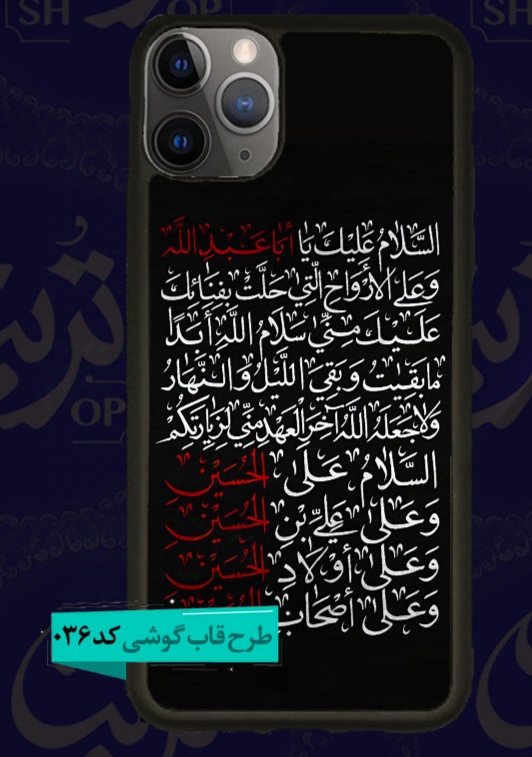 SH OP
SH
السَّلامُ عَلَيْكَ يَا أَبَا عَبْدِ اللَّهِ
وَعَلَى الأَرْوَاحِ الَّتِي حَلَّتْ بِفِنَائِكَ
عَلَيْكَ مِنِّي سَلامُ اللَّهِ أَبَدًا
مَا بَقِيتُ وَبَقِيَ اللَّيْلُ وَالنَّهَارُ
وَلاجَعَلَهُ اللَّهُ آخِرَ الْعَهْدِ مِنِّي لِزِيَارَتِكُمْ
السَّلامُ عَلَى الْحُسَيْنِ
وَعَلَى عَلِيِّ بْنِ الْحُسَيْنِ
وَعَلَى أَوْلادِ الْحُسَيْنِ
وَعَلَى أَصْحَابِ
طرح قاب گوشی کد ۰۳۶
OP